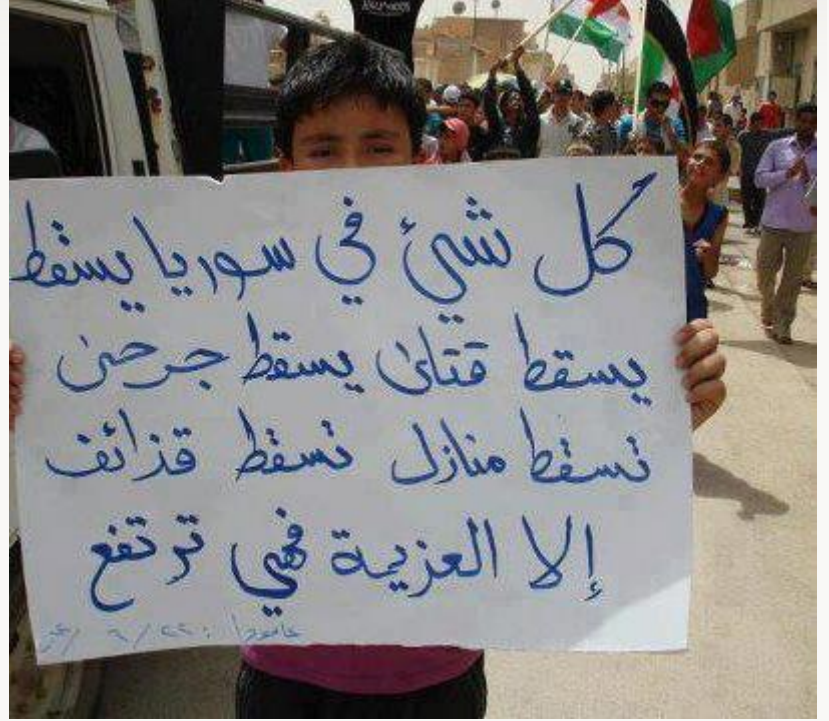 كل شيئ في سوريا يسقط
يسقط قتلى يسقط جرحى
تسقط منازل تسقط قذائف
إلا العزيمة فهي ترتفع
عامودا